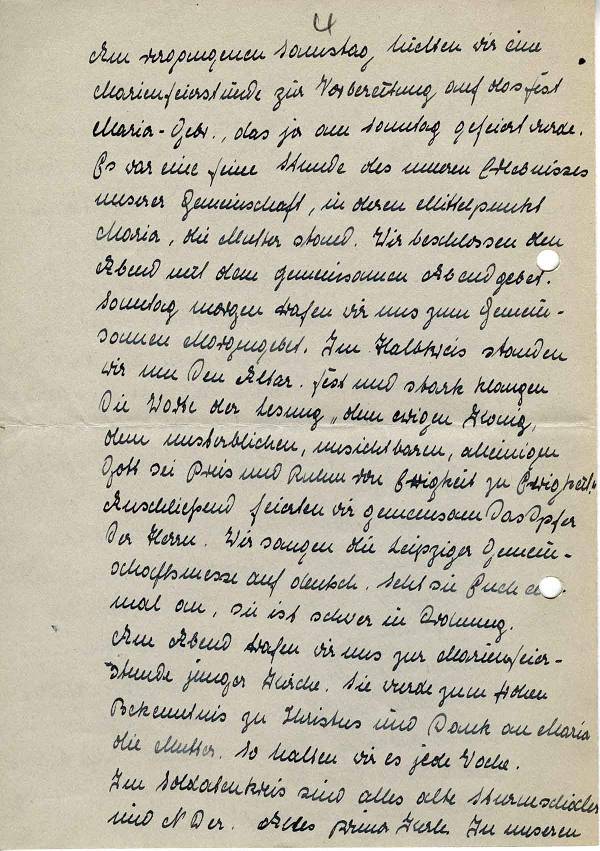 4
Am vergangenen Samstag, hielten wir eine
Marienfeierstunde zur Vorbereitung auf das Fest
Maria-Geb., das ja am Sonntag gefeiert wurde.
Es war eine feine Stunde des inneren Erlebnisses
unserer Gemeinschaft, in deren Mittelpunkt
Maria, die Mutter stand. Wir beschlossen den
Abend mit dem gemeinsamen Abendgebet.
Sonntag morgen trafen wir uns zum Gemein-
samen Morgengebet. Im Halbkreis standen
wir um den Altar. Fest und stark klangen
die Worte der Lesung „dem ewigen König,
dem unsterblichen, unsichtbaren, alleinigen
Gott sei Preis und Ruhm von Ewigkeit zu Ewigkeit!"
Anschließend feierten wir gemeinsam Das Opfer
Des Herrn. Wir sangen die Leipziger Gemein-
schaftsmesse auf deutsch. Seht sie Euch
mal an, sie ist schwer in Ordnung.
Am Abend trafen wir uns zur Marienfeier-
stunde junger Kirche. Sie wurde zum frohen
Bekenntnis zu Christus und Dank an Maria
die Mutter. So halten wir es jede Woche.
Im Soldatenkreis sind alles alte Sturmschärler
und N Der. Alles prima Kerle. In unseren